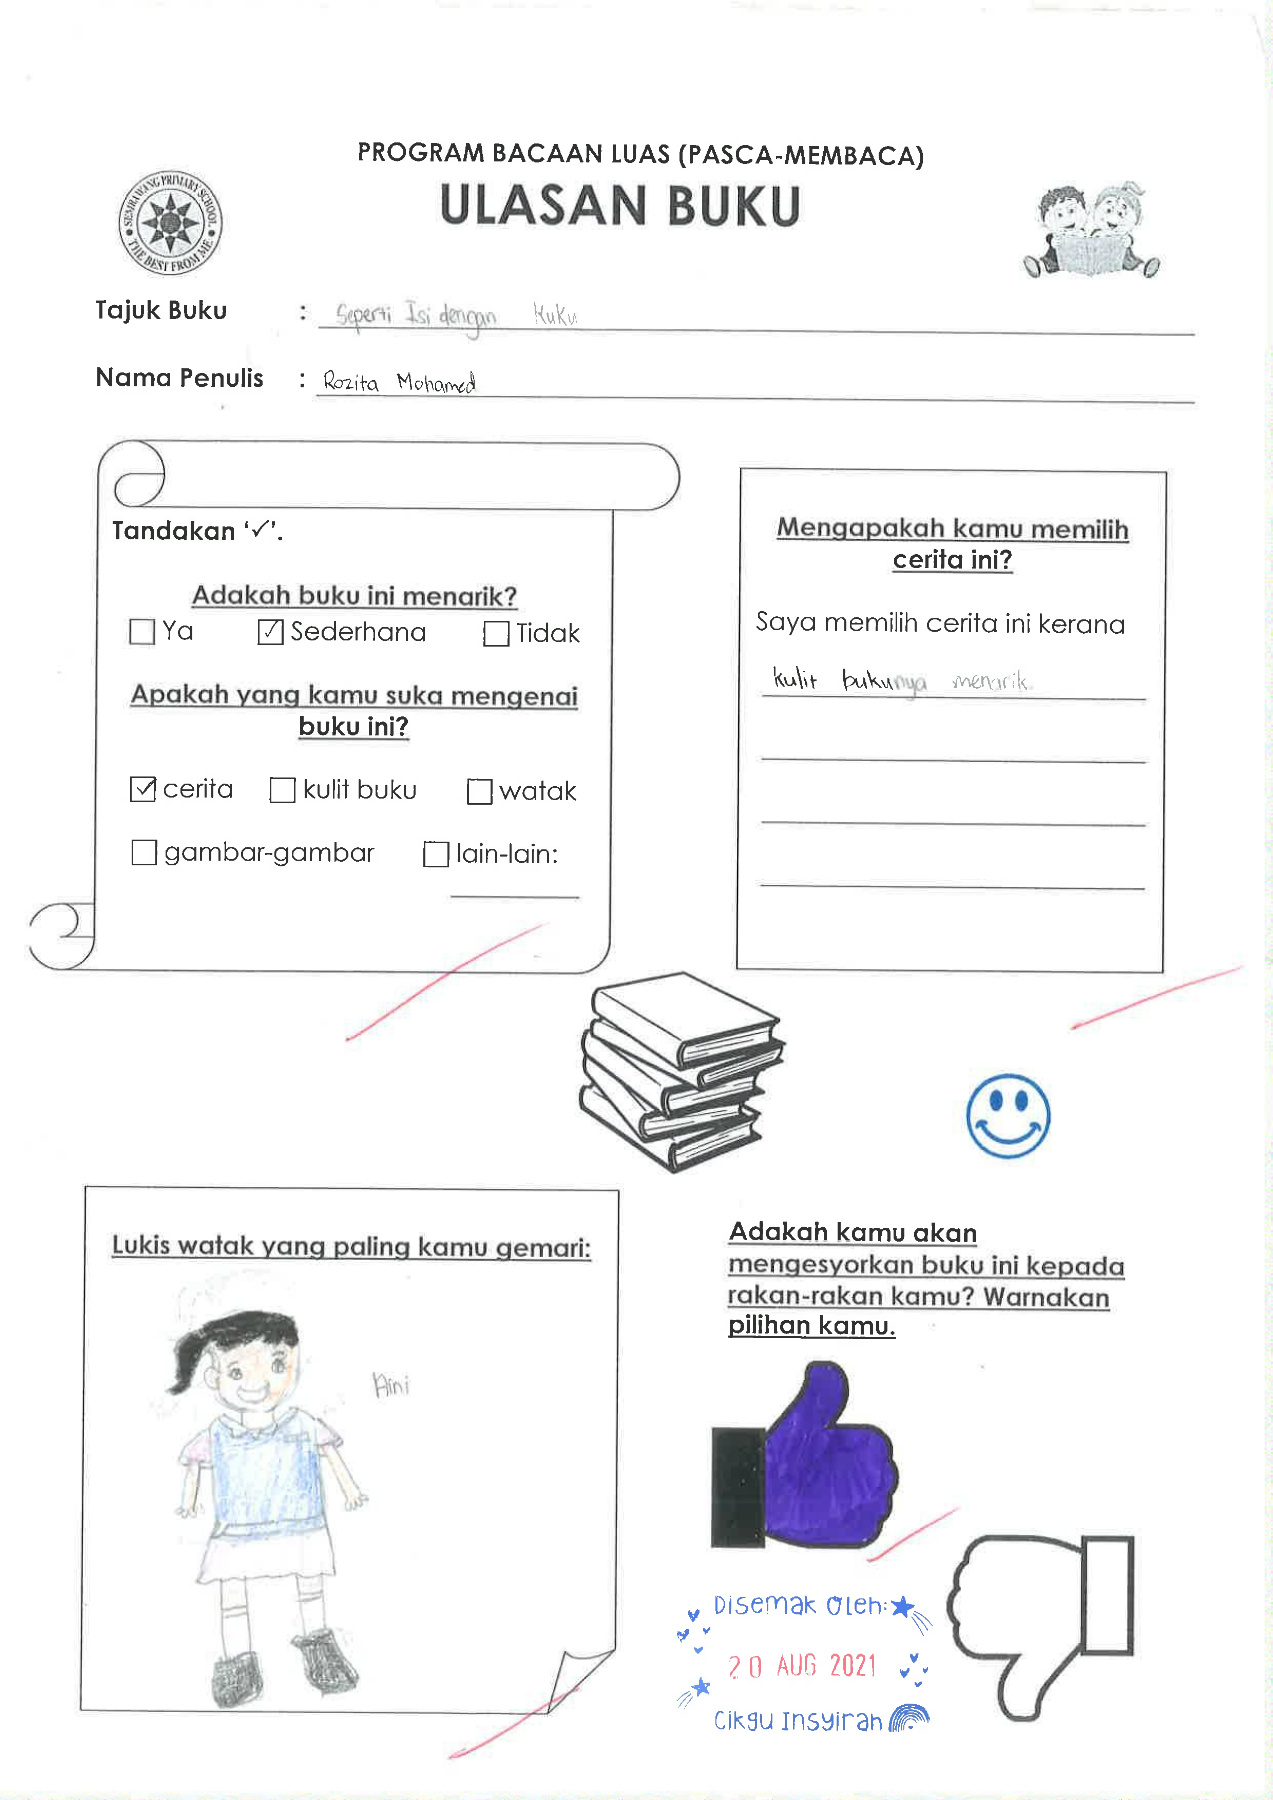 PROGRAM BACAAN LUAS (PASCA-MEMBACA)
ULASAN BUKU
SEMBAWANG PRIMARY SCHOOL
THE BEST FROM ME
Tajuk Buku : Seperti Isi dengan Kuku
Nama Penulis : Rozita Mohamed
Tandakan ‘✓’.
Adakah buku ini menarik?
☐ Ya ☑ Sederhana ☐ Tidak
Apakah yang kamu suka mengenai
buku ini?
☑ cerita ☐ kulit buku ☐ watak
☐ gambar-gambar ☐ lain-lain:
Mengapakah kamu memilih
cerita ini?
Saya memilih cerita ini kerana
kulit bukunya menarik.
Lukis watak yang paling kamu gemari:
Aini
Adakah kamu akan
mengesyorkan buku ini kepada
rakan-rakan kamu? Warnakan
pilihan kamu.
Disemak Oleh:
20 AUG 2021
Cikgu Insyirah